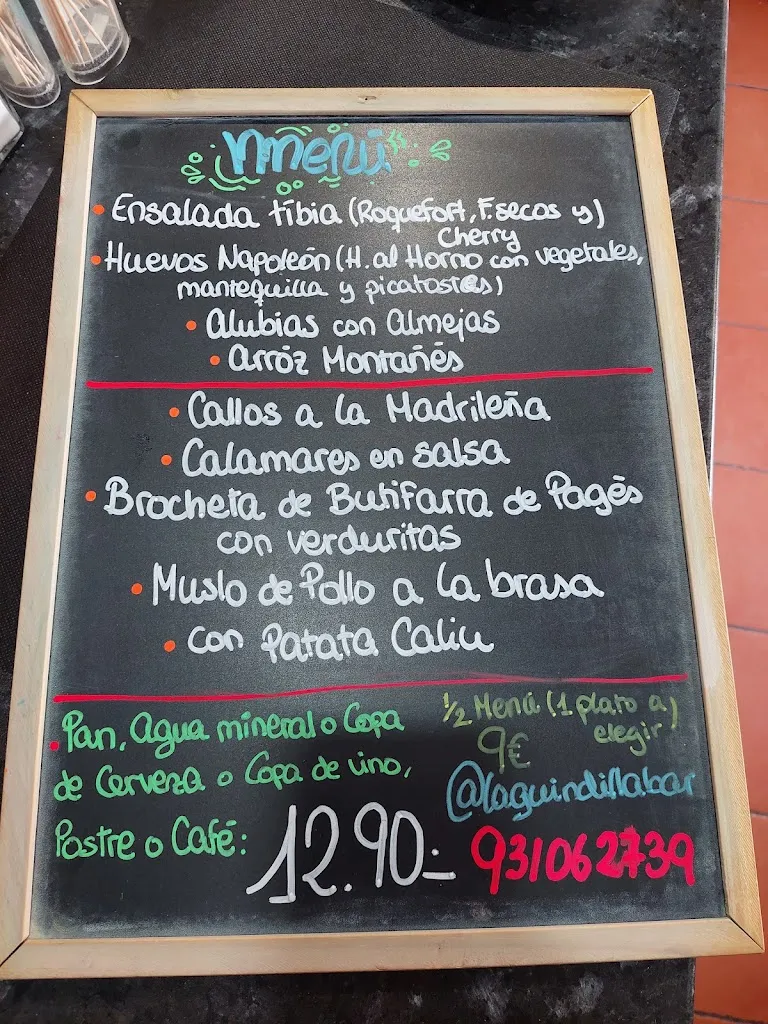 menú
• Ensalada tíbia (Roquefort, F. secos y)
Cherry
• Huevos Napoleón (H. al Horno con vegetales,
mantequilla y picatostes)
• Alubias con Almejas
• Arróz Montañés
• Callos a la Madrileña
• Calamares en salsa
• Brocheta de Butifarra de Pagés
con verduritas
• Muslo de Pollo a la brasa
• con Patata Caliu
• Pan, Agua mineral o Copa
de Cerveza o Copa de vino,
Postre o Café: 12.90.-
1/2 Menú (1 plato a)
elegir
9€
@laguindillabar
931062739